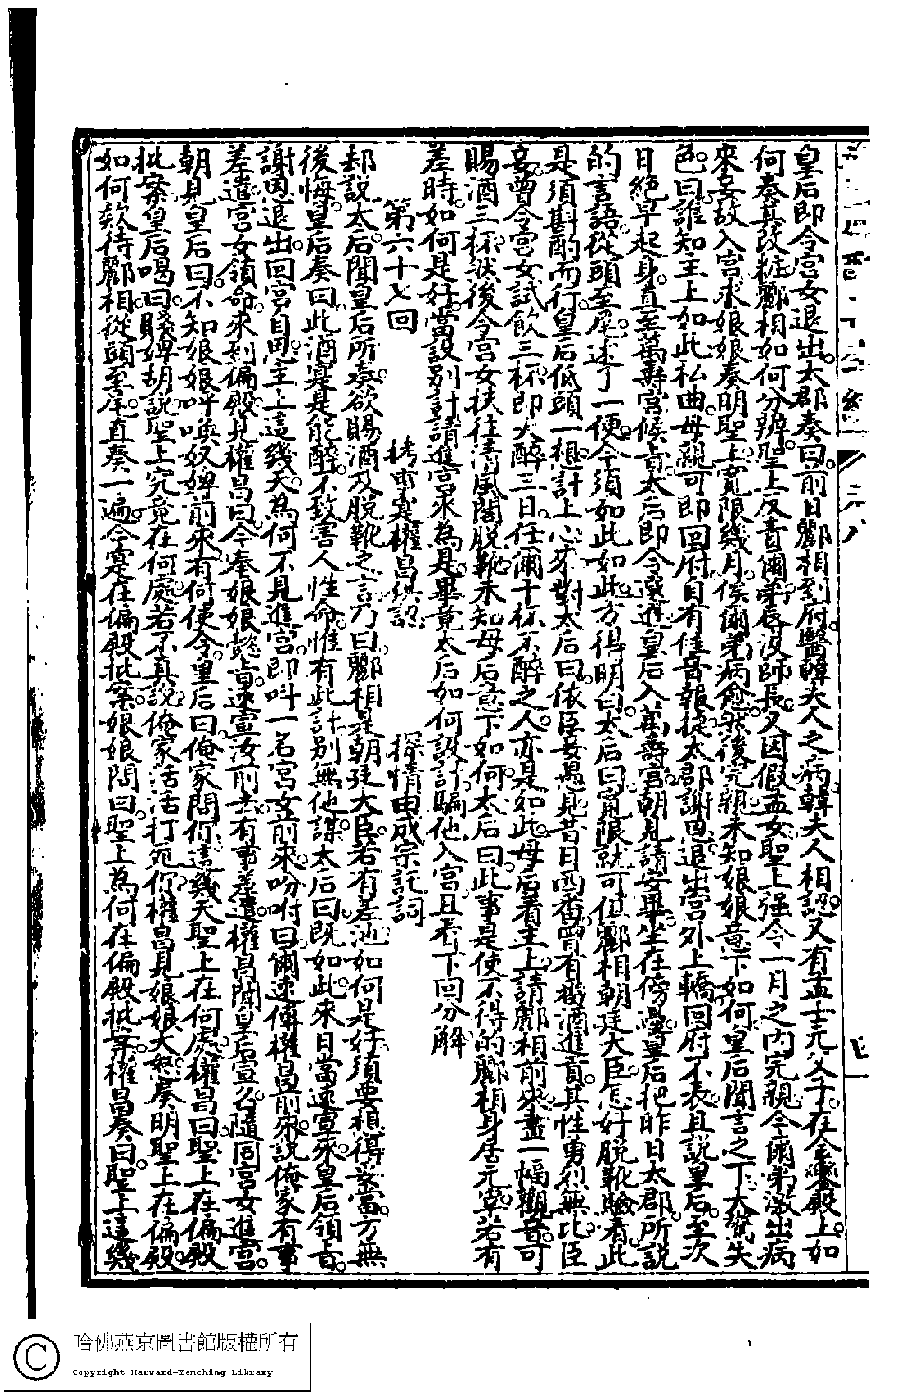 皇后即令宮女退出。太郡奏曰。前日酈相到府醫韓夫人之病。韓夫人相認。又有孟士元父子。在金鑾殿上。如
何奏其改粧。酈相如何分辨。聖上反責爾弟辱沒師長。又因假孟女。聖上强令一月之內完親。令爾弟激出病
來。妾故入宮求娘娘奏明聖上。寬限幾月。俟爾弟病愈。然後完親。未知娘娘意下如何。皇后聞言之下。大驚失
色。曰誰知主上如此私曲。母親可即回府。自有佳音報捷。太郡謝恩。退出宮外。上轎回府不表。且說皇后。至次
日絕早起身。直至萬壽宮候旨。太后即令宣進。皇后入萬壽宮朝見請安畢。坐在傍。皇后把昨日太郡所說
的言語。從頭至尾。述了一便。今須如此如此。方得明白。太后曰。寬限就可。但酈相朝廷大臣。怎好脫靴驗看。此
是須斟酌而行。皇后低頭一想。計上心來。對太后曰。依臣妾愚見。昔日西番曾有機酒進貢。其性勇烈無比。臣
妾曾令宮女試飲三杯。即大醉三日。任爾十杯不醉之人。亦是如此。母后着主上。請酈相前來。畫一幅觀音。可
賜酒三杯。然後令宮女扶往清風閣脫靴。未知母后意下如何。太后曰。此事是使不得的。酈相身居元宰。若有
差時。如何是好。當設別計請進宮來為是。畢竟太后如何設計騙他入宮。且看下回分解
第六十七回 拷重案權昌供認 探情由成宗託詞
却說太后聞皇后所奏。欲賜酒及脫靴之言。乃曰。酈相是朝廷大臣。若有差池。如何是好。須要想得妥當。方無
後悔。皇后奏曰。此酒實是能醉。不致害人性命。惟有此計。別無他謀。太后曰。既如此。來日當速宣來。皇后領旨。
謝恩退出回宮。自思主上這幾天。為何不見進宮。即叫一名宮女前來。吩咐曰。爾速傳權昌前來。說俺家有事
差遣。宮女領命。來到偏殿。見權昌曰。今奉娘娘懿旨。速宣汝前去。有事差遣。權昌聞皇后宣召。隨同宮女進宮。
朝見皇后曰。不知娘娘呼喚奴婢前來。有何使令。皇后曰。俺家問你。這幾天聖上在何處。權昌曰。聖上在偏殿
批案。皇后喝曰。賤婢胡說。聖上究竟在何處。若不真說。俺家活活打死你。權昌見娘娘大怒。奏明聖上在偏殿。
如何欵待酈相。從頭至尾。直奏一遍。今實在偏殿批案。娘娘問曰。聖上為何在偏殿批案。權昌奏曰。聖上這幾
哈佛燕京圖書館版權所有
Copyright Harvard-Yenching Library